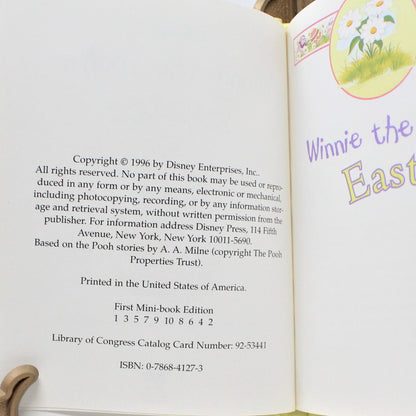 Copyright © 1996 by Disney Enterprises, Inc..
All rights reserved. No part of this book may be used or repro-
duced in any form or by any means, electronic or mechanical,
including photocopying, recording, or by any information stor-
age and retrieval system, without written permission from the
publisher. For information address Disney Press, 114 Fifth
Avenue, New York, New York 10011-5690.
Based on the Pooh stories by A. A. Milne (copyright The Pooh
Properties Trust).
Printed in the United States of America.
First Mini-book Edition
1 3 5 7 9 10 8 6 4 2
Library of Congress Catalog Card Number: 92-53441
ISBN: 0-7868-4127-3
Winnie the
East